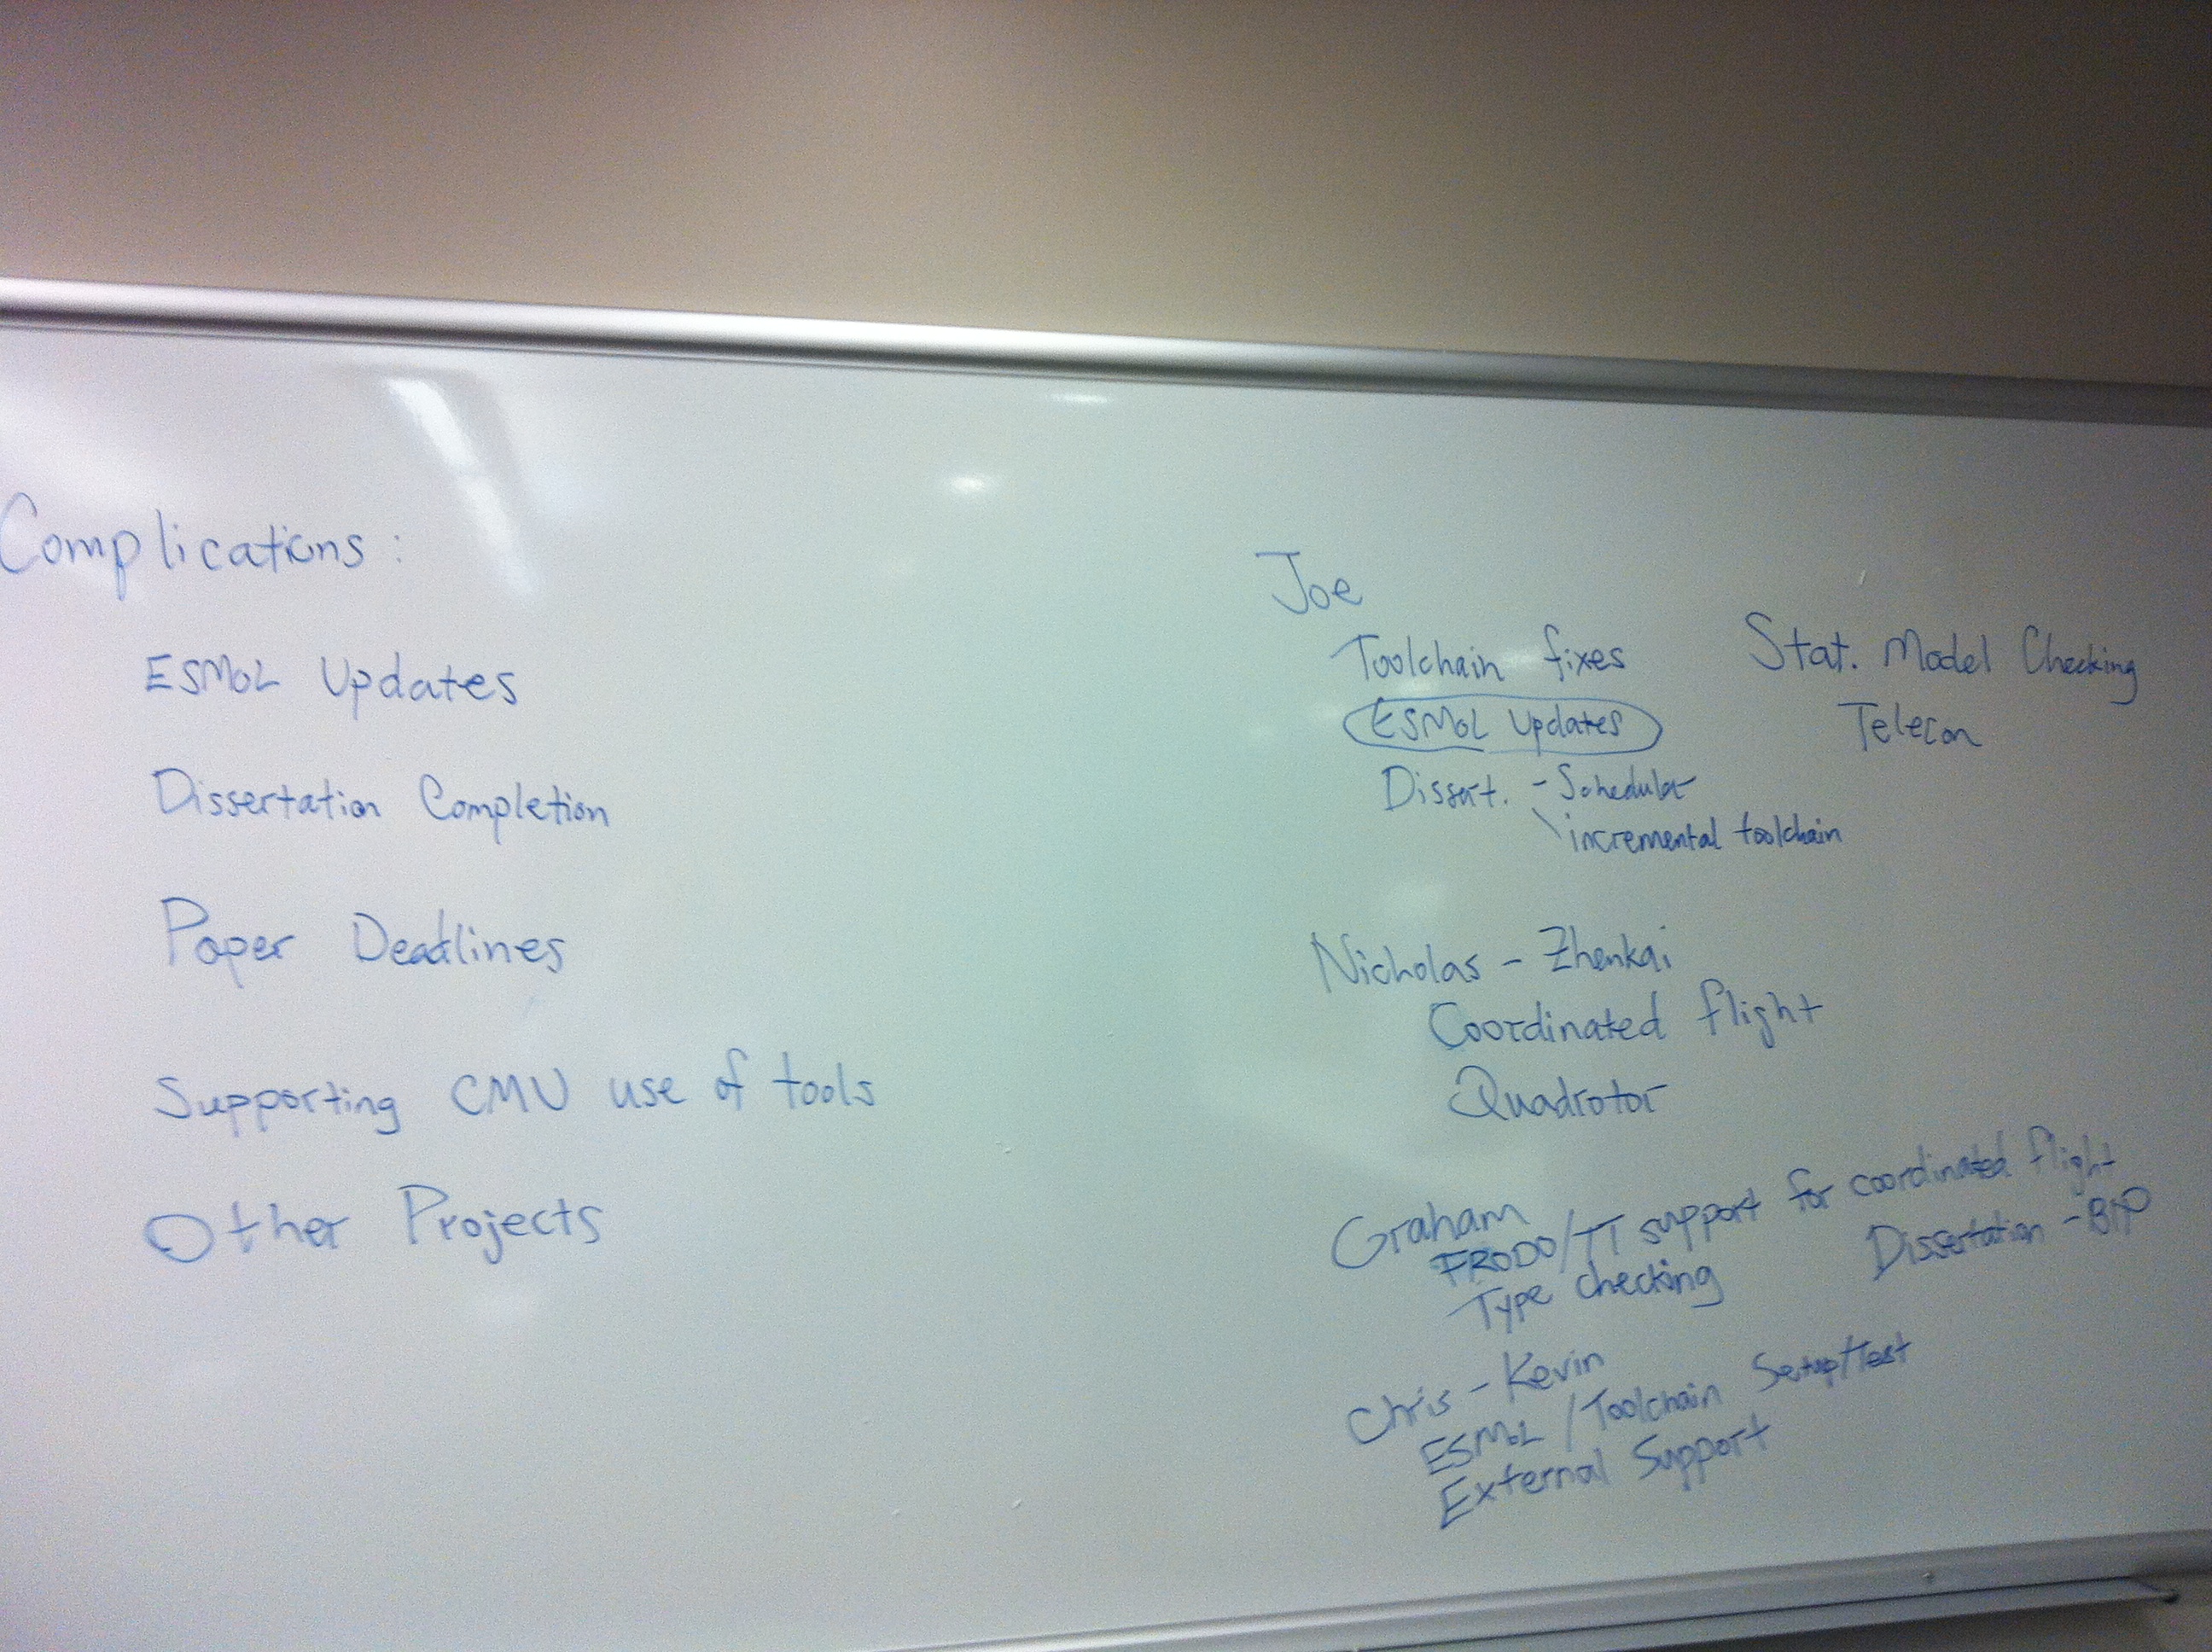 Complications:
ESMoL Updates
Dissertation Completion
Paper Deadlines
Supporting CMU use of tools
Other Projects
Joe
Toolchain fixes
ESMoL Updates
Dissert. - Scheduler
\ incremental toolchain
Stat. Model Checking
Telecon
Nicholas - Zhenkai
Coordinated flight
Quadrotor
Graham
FRODO/TT support for coordinated flight
Type checking
Dissertation - BIP
Chris - Kevin
ESMoL / Toolchain Setup/Test
External Support